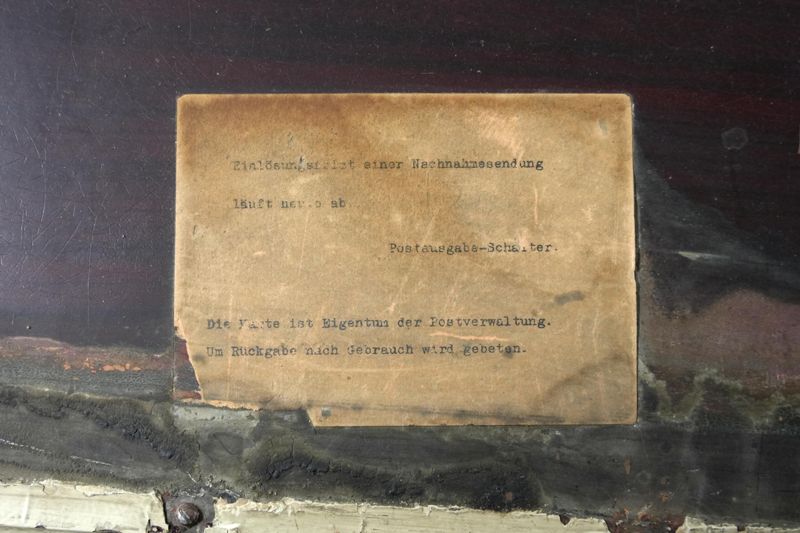 Einlösungsfrist einer Nachnahmesendung
läuft heute ab.
Postausgabe-Schalter.
Die Karte ist Eigentum der Postverwaltung.
Um Rückgabe nach Gebrauch wird gebeten.